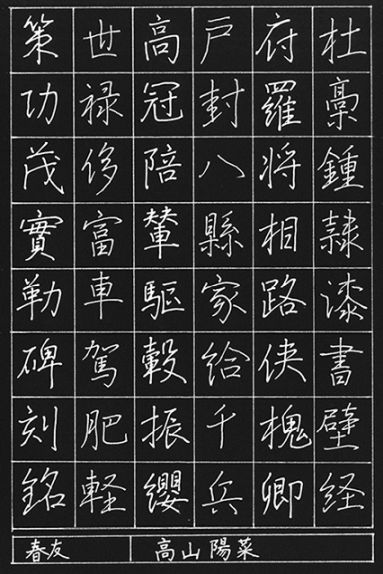 杜稾鍾隷漆書壁経
府羅将相路侠槐卿
戸封八縣家給千兵
高冠陪輦駆轂振纓
世禄侈富車駕肥軽
策功茂實勒碑刻銘
春友 高山陽菜